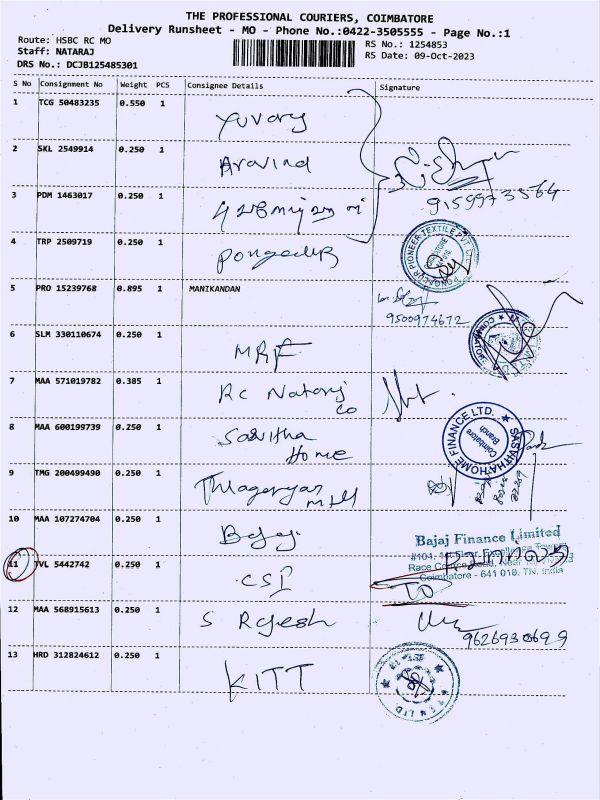 THE PROFESSIONAL COURIERS, COIMBATORE
Delivery Runsheet - MO - Phone No.:0422-3505555 - Page No.:1
Route: HSBC RC MO
Staff: NATARAJ
DRS No.: DCJB125485301
RS No.: 1254853
RS Date: 09-Oct-2023
S No Consignment No Weight PCS Consignee Details Signature
1 TCG 50483235 0.550 1 Yuvaraj
2 SKL 2549914 0.250 1 Aravind
3 PDM 1463017 0.250 1
9159973564
4 TRP 2509719 0.250 1 Pongalur
PONGALUR PIONEER TEXTILE PVT LTD
5 PRO 15239768 0.895 1 MANIKANDAN
9500974672
6 SLM 330110674 0.250 1 MRF
7 MAA 571019782 0.385 1 RC Nataraj
Co
8 MAA 600199739 0.250 1 Sasvitha
Home
SASVITHA HOME FINANCE LTD.
Coimbatore
Branch
9 TMG 200499490 0.250 1 Thiagarajar
Mill
10 MAA 107274704 0.250 1 Bajaj
Bajaj Finance Limited
#104, 1st Floor,
Race Course Road,
Coimbatore - 641 018. TN. India
11 TVL 5442742 0.250 1 CSI
TO
12 MAA 568915613 0.250 1 S Rajesh
9626930699
13 HRD 312824612 0.250 1 KITT